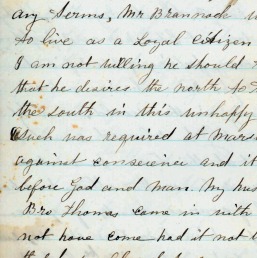 any terms, Mr Brannock
to live as a Loyal citizen
I am not willing he should
that he desires the north to
the south in this unhappy
such was required at Mars
against conscience and it
before God and man. My hus
Bro Thomas came in with
not have come had it not